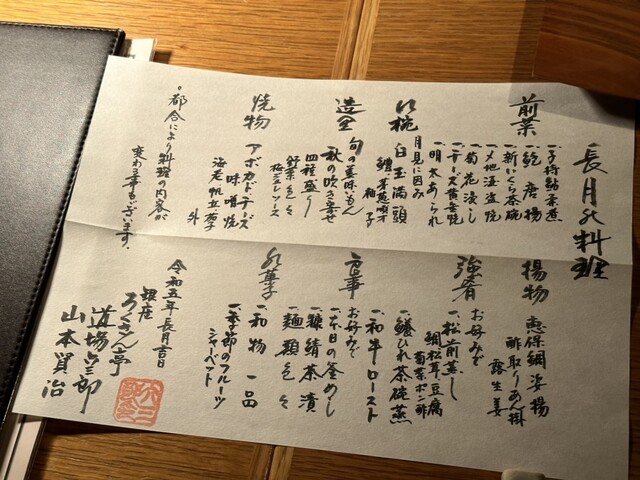 長月の料理
前菜
一、子持鮎柔煮
一、鮑 唐揚
一、新いくら茶碗
一、菊花浸し
一、チーズ黄金焼
一、明太あられ
お椀
月見に因み
白玉満頭
鱧 芽葱 順才
柚子
造里
旬の美味いもん
秋の吹き寄せ
四種盛り
野菜色々
焼物
アボカドチーズ
味噌焼
海老 帆立 茄子
外
都合により料理の内容が
変わる事もございます。
揚物
恵保鯛姿揚
酢取りあん掛
露生姜
強肴
お好みで
一、松前蒸し
鯛松茸豆腐
菊菜ポン酢
一、鱶ひれ茶碗蒸
一、和牛ロースト
食事
お好みで
一、本日の釜めし
一、糠鯖茶漬
一、麺類色々
水菓子
一、和物 一品
一、季節のフルーツ
シャーベット
令和五年長月吉日
銀座
ろくさん亭
道場六三郎
山本賢治